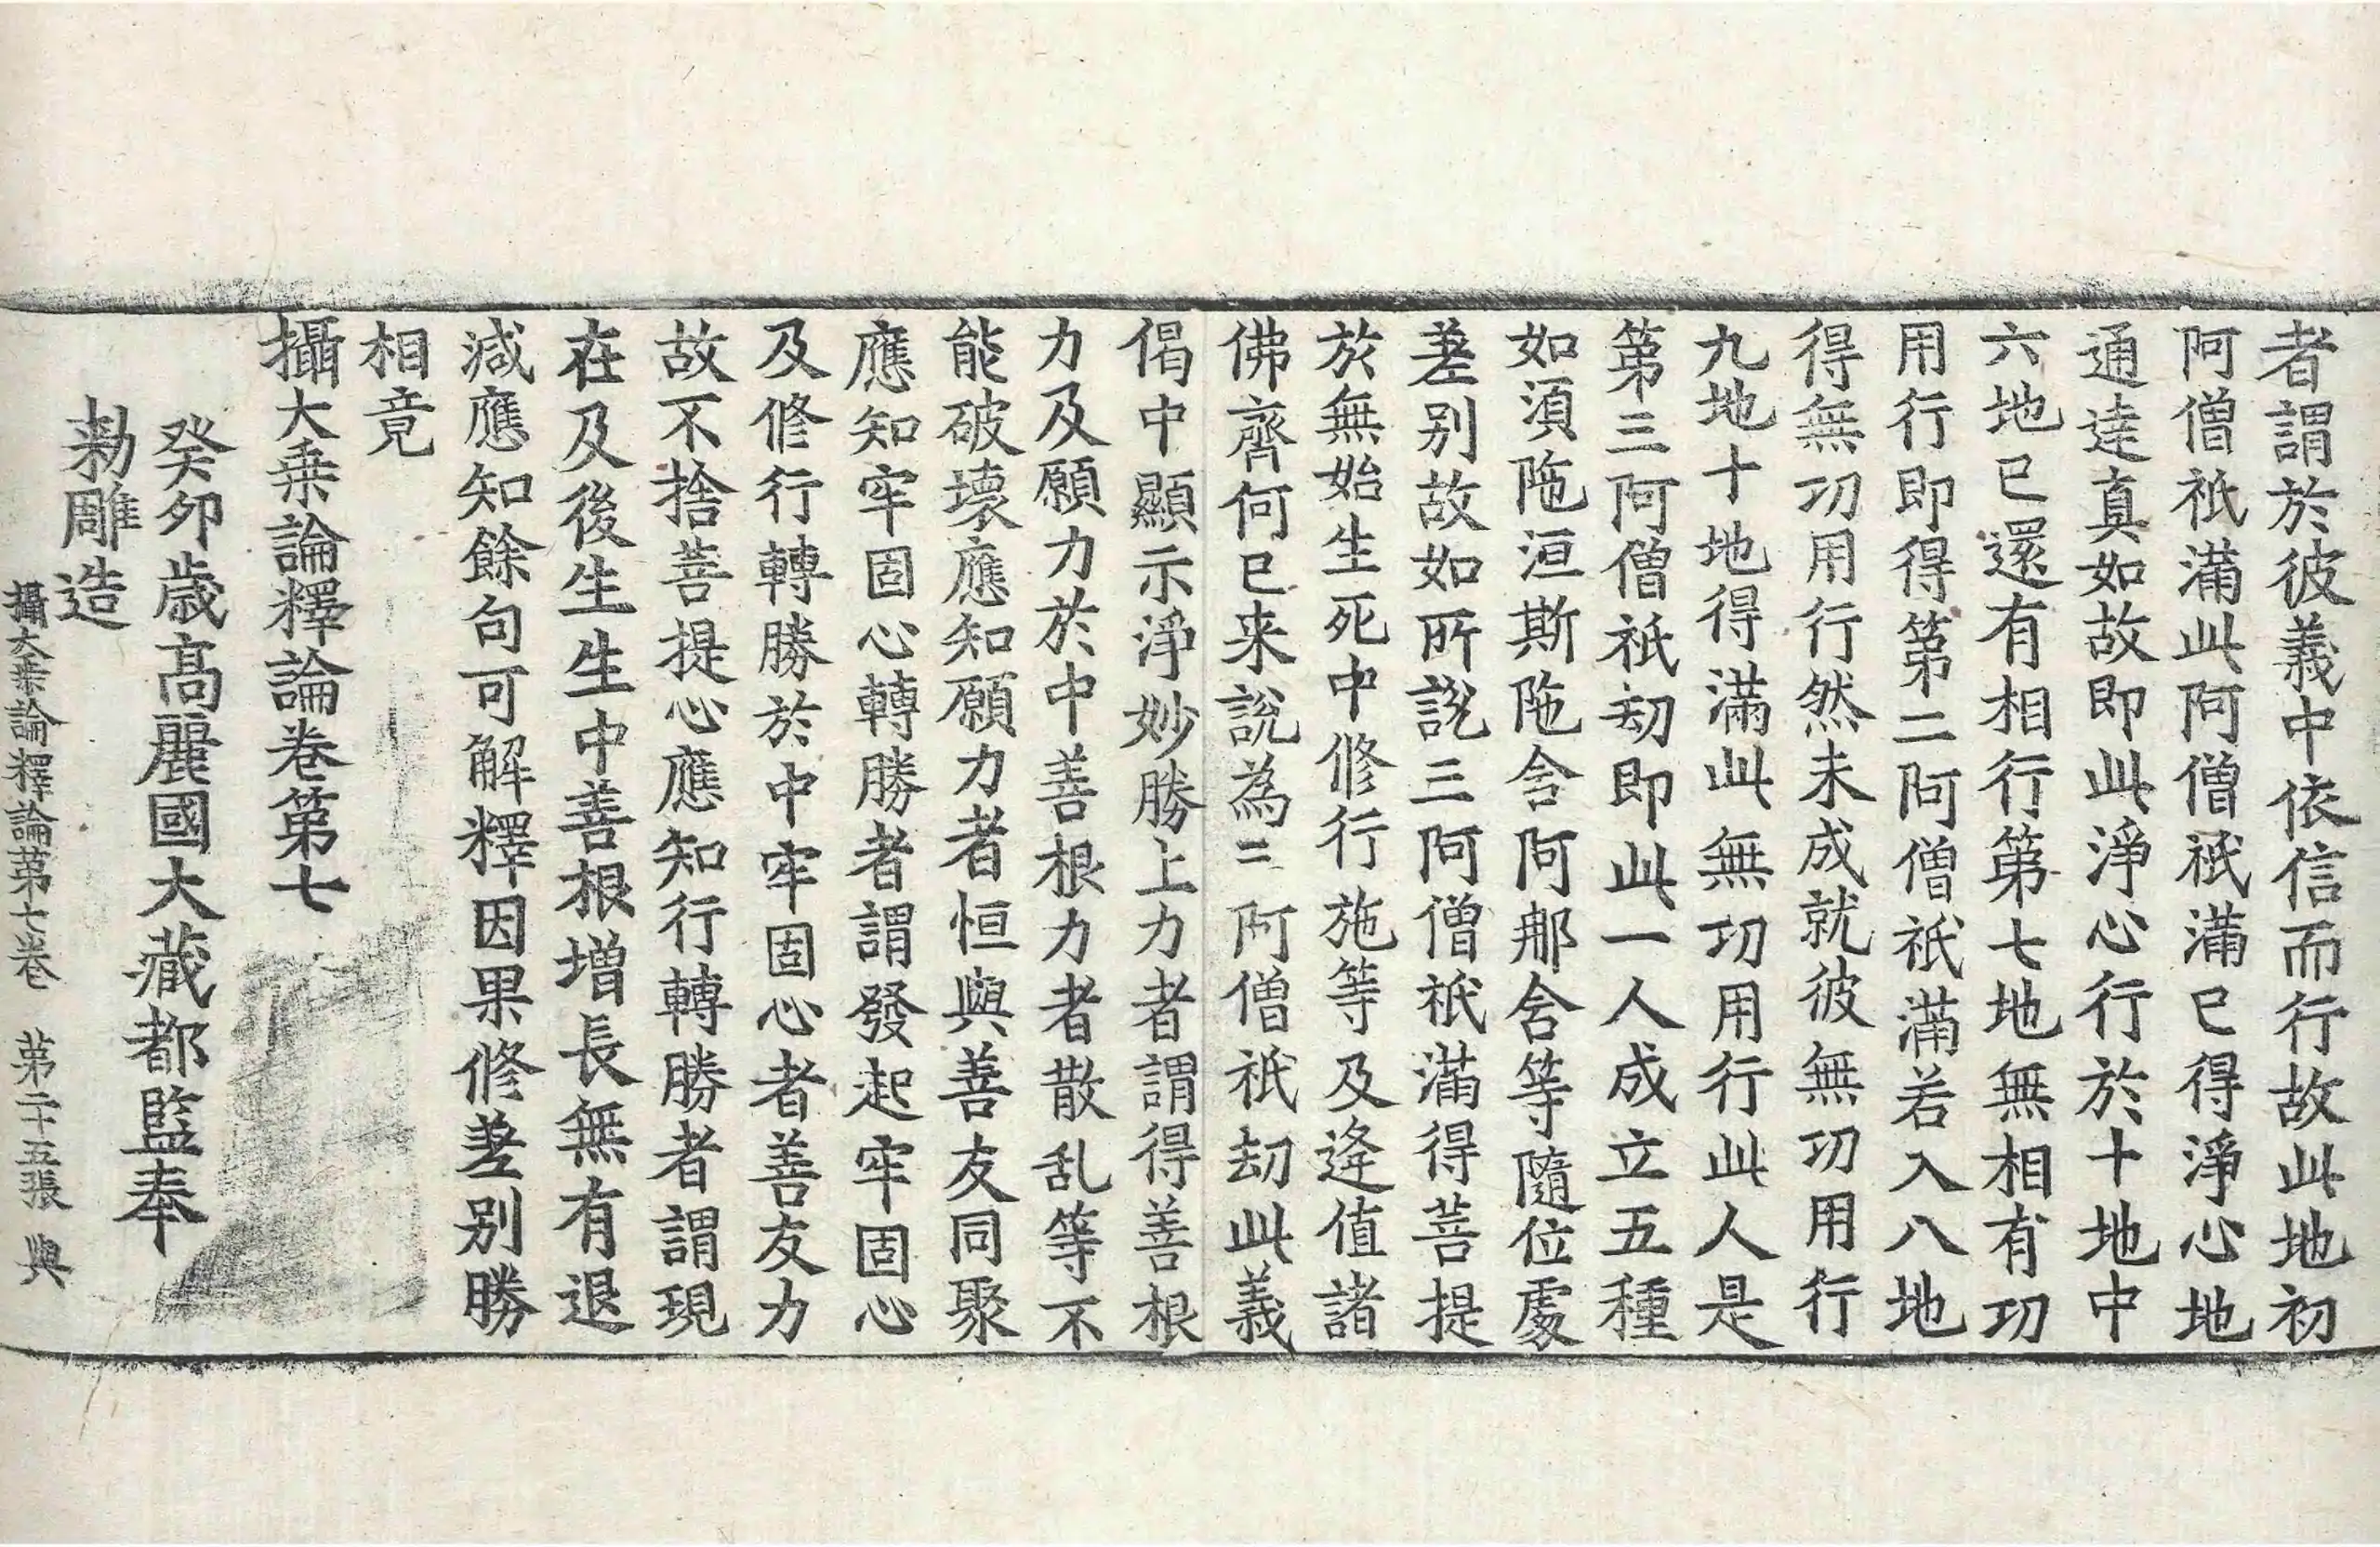 者謂於彼義中依信而行故此地初
阿僧祇滿此阿僧祇滿已得淨心地
通達真如故即此淨心行於十地中
六地已還有相行第七地無相有功
用行即得第二阿僧祇滿若入八地
得無功用行然未成就彼無功用行
九地十地得滿此無功用行此人是
第三阿僧祇劫即此一人成立五種
如湏陁洹斯陁含阿那含等隨位處
差别故如所說三阿僧祇滿得菩提
於無始生死中修行施等及逄值諸
佛齊何已来說為三阿僧祇劫此義
偈中顯示淨妙勝上力者謂得善根
力及願力於中善根力者散乱等不
能破壞應知願力者恒與善友同聚
應知牢固心轉勝者謂發起牢固心
及修行轉勝於中牢固心者善友力
故不捨菩提心應知行轉勝者謂現
在及後生生中善根增長無有退
減應知餘句可解釋因果修差别勝
相竟
攝大乗論釋論卷第七
癸卯歲高麗國大藏都監奉
勑雕造
攝大乗論釋論第七卷 第二十五張 與